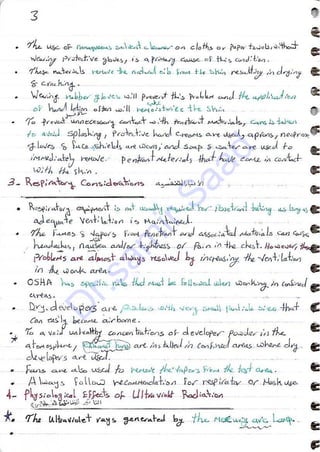 3
• The use of nonaqueous solvent cleaner on cloths or Paper towels, without
wearing Protective gloves, is a Primary cause of this condition.
• These materials remove the natural oils from the skin resulting in drying
& cracking.
• Wearing rubber gloves will prevent this Problem and the application
of hand lotion often will remoisturize the skin.
• To prevent unnecessary contact with Penetrant materials, care is taken
to avoid splashing, Protective hand creams are used, aprons, neoprene
gloves & face shields are worn, and soap & water are used to
immediately remove Penetrant Materials that have come in contact
with the skin.
3- Respiratory Considerations
• Respiratory equipment is not usually required for Penetrant testing as long as
adequate Ventilation is Maintained.
• The fumes & vapors from Penetrant and associated Materials can cause
headaches, nausea and/or tightness or Pain in the chest. However these
Problems are almost always resolved by increasing the Ventilation
in the work area.
• OSHA has specific rules that must be followed when working in confined
areas.
• Dry developers are with very small Particle size that
can easily become airborne.
• To avoid unhealthy concentrations of developer Powder in the
atmosphere, are installed in confined areas where dry
developers are used.
• Fans are also used to remove the vapors from the test area.
• Always follow recommendation for respirator or Mask use.
4- Physiological Effects of Ultraviolet Radiation
* The Ultraviolet rays generated by the Mercury arc Lamp.